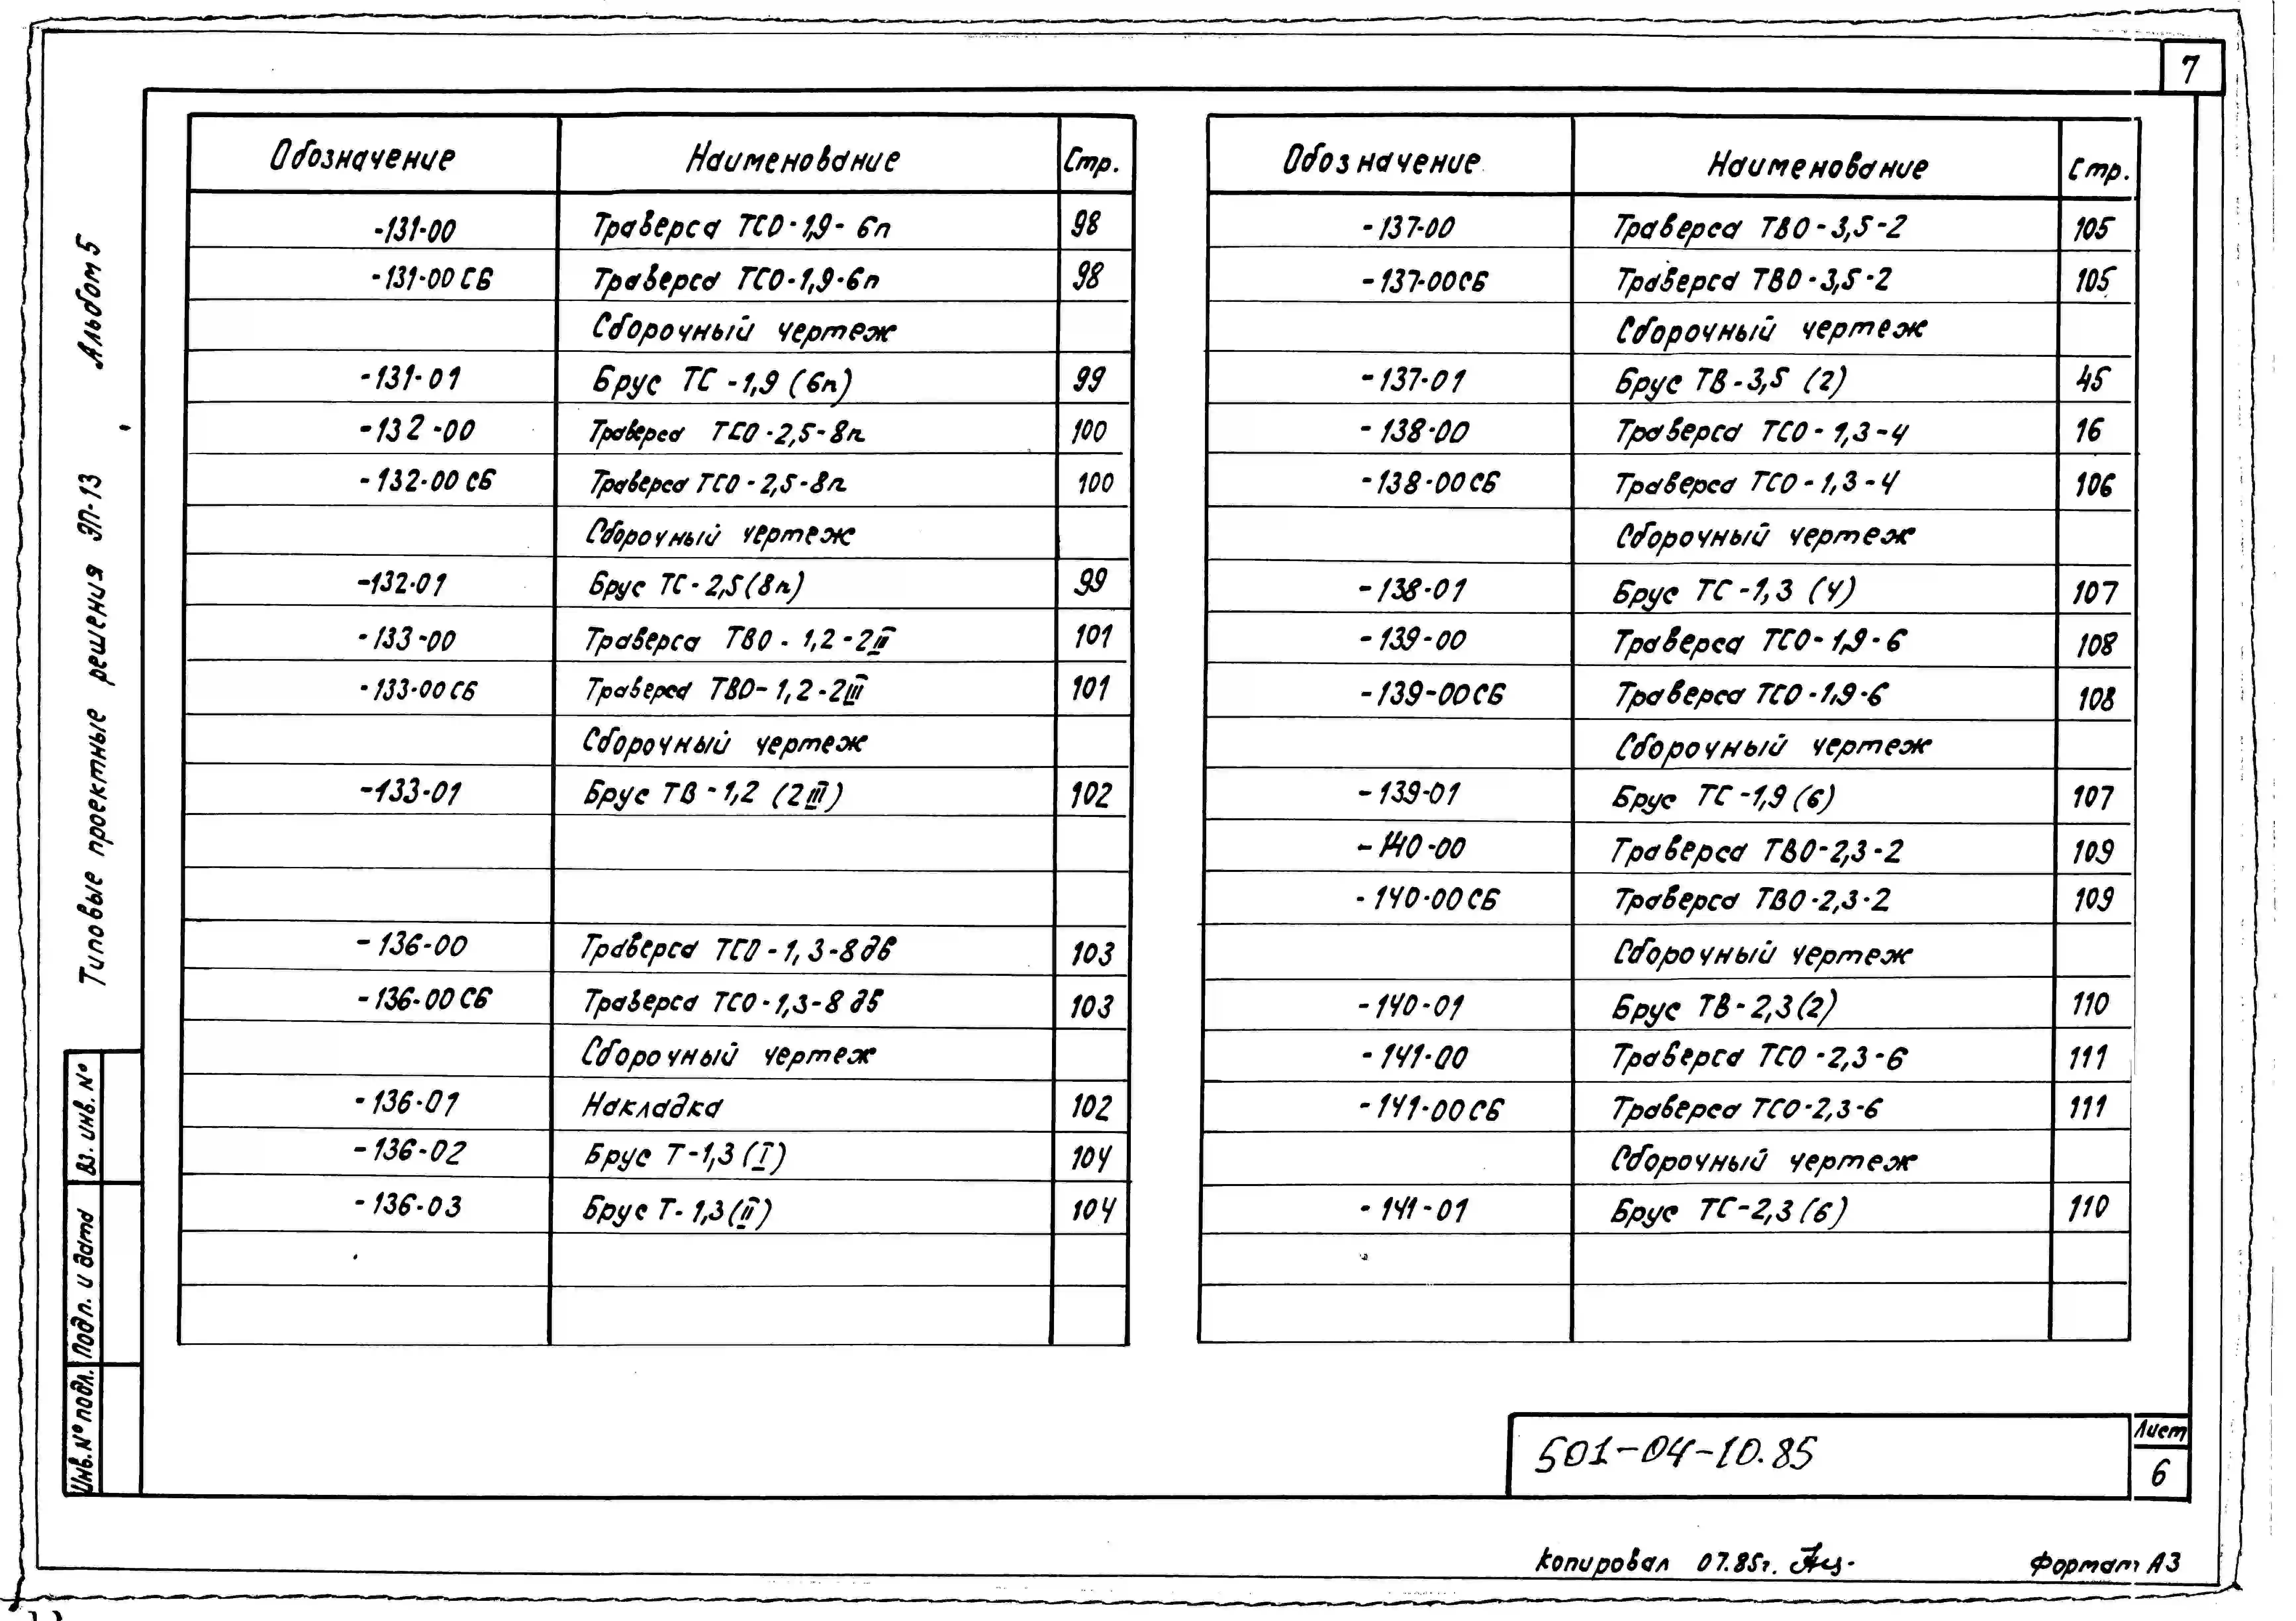 7
Альбом 5
Типовые проектные решения ЭП-13
Обозначение Наименование Стр.
-131-00 Траверса ТСО-1,9-6п 98
-131-00 СБ Траверса ТСО-1,9-6п 98
Сборочный чертеж
-131-01 Брус ТС-1,9 (6п) 99
-132-00 Траверса ТСО-2,5-8п 100
-132-00 СБ Траверса ТСО-2,5-8п 100
Сборочный чертеж
-132-01 Брус ТС-2,5(8п) 99
-133-00 Траверса ТВО-1,2-2II 101
-133-00 СБ Траверса ТВО-1,2-2III 101
Сборочный чертеж
-133-01 Брус ТВ-1,2 (2III) 102
-136-00 Траверса ТСО-1,3-8дб 103
-136-00 СБ Траверса ТСО-1,3-8дб 103
Сборочный чертеж
-136-01 Накладка 102
-136-02 Брус Т-1,3 (I) 104
-136-03 Брус Т-1,3 (II) 104
Обозначение Наименование Стр.
-137-00 Траверса ТВО-3,5-2 105
-137-00СБ Траверса ТВО-3,5-2 105
Сборочный чертеж
-137-01 Брус ТВ-3,5 (2) 45
-138-00 Траверса ТСО-1,3-4 16
-138-00СБ Траверса ТСО-1,3-4 106
Сборочный чертеж
-138-01 Брус ТС-1,3 (4) 107
-139-00 Траверса ТСО-1,9-6 108
-139-00СБ Траверса ТСО-1,9-6 108
Сборочный чертеж
-139-01 Брус ТС-1,9 (6) 107
-140-00 Траверса ТВО-2,3-2 109
-140-00СБ Траверса ТВО-2,3-2 109
Сборочный чертеж
-140-01 Брус ТВ-2,3(2) 110
-141-00 Траверса ТСО-2,3-6 111
-141-00СБ Траверса ТСО-2,3-6 111
Сборочный чертеж
-141-01 Брус ТС-2,3 (6) 110
Вз. инв. №
Подп. и дата
Инв.№ подл.
501-04-10.85
Лист
6
Копировал 07.85г.
Формат А3